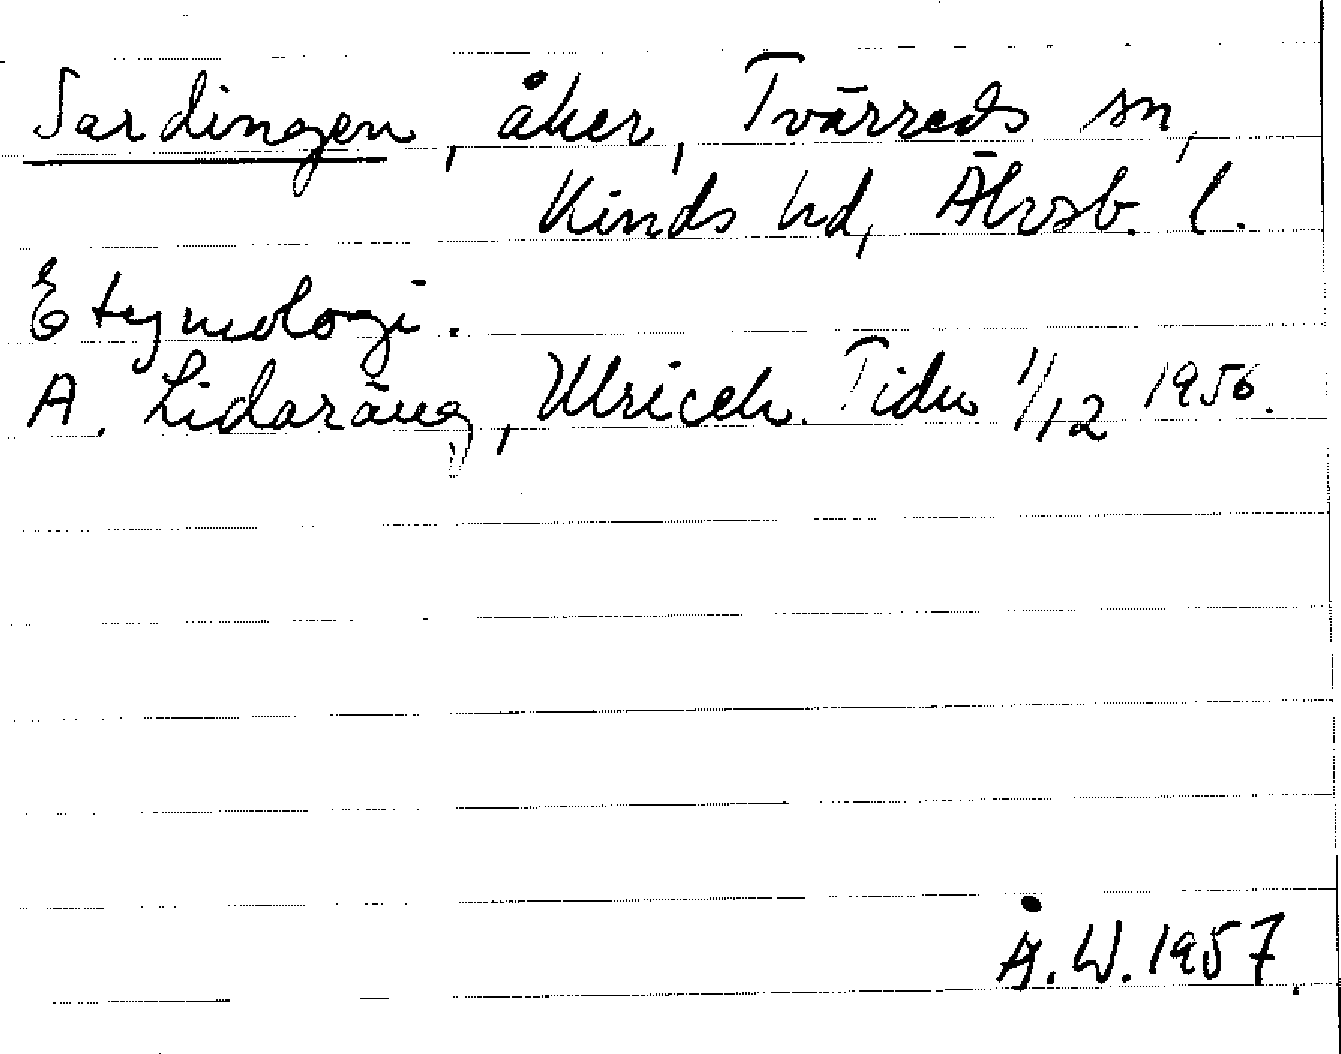 Sardingen, åker, Tvärreds sn,
Kinds hd, Älvsb. l.
Etymologi.
A. Lidaräng, Ulriceh. Tidn 1/12 1956.
Å.W. 1957.